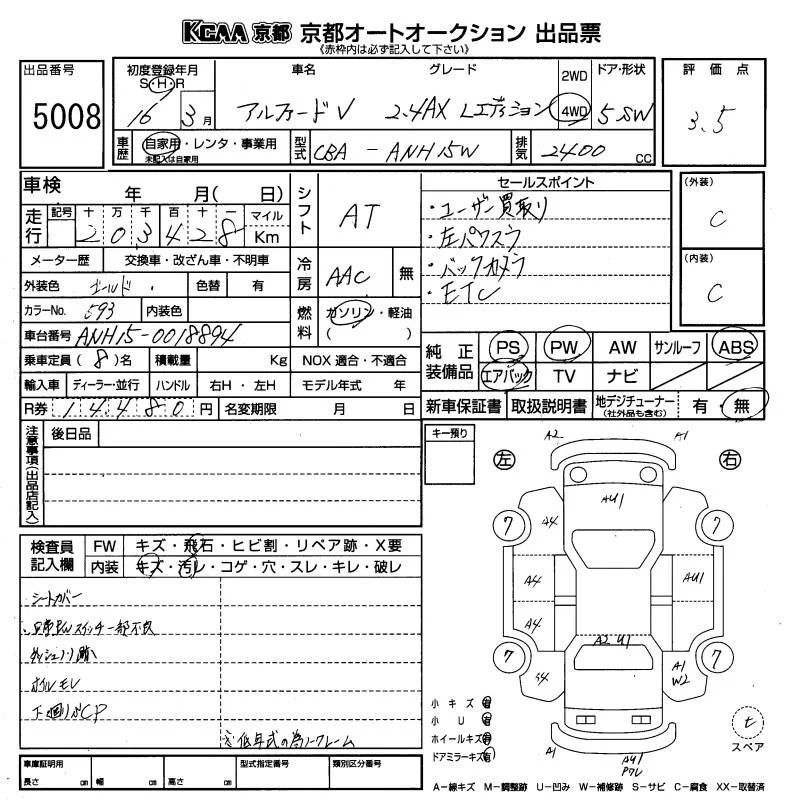 KCAA 京都 京都オートオークション 出品票
《赤枠内は必ず記入して下さい》
出品番号
5008
初度登録年月
S・H・R
16 3月
車名
アルファードV
グレード
2.4AX Lエディション
2WD
4WD
ドア・形状
5 SW
評価点
3.5
車歴
自家用・レンタ・事業用
未記入は自家用
型式
CBA - ANH15W
排気
2400 CC
車検 年 月( 日)
走行
記号 十 万 千 百 十 一
203428
マイル
Km
メーター歴 交換車・改ざん車・不明車
外装色 ゴールド 色替 有
カラーNo. 593 内装色
車台番号 ANH15-0018894
乗車定員(8)名 積載量 Kg NOX 適合・不適合
輸入車 ディーラー・並行 ハンドル 右H・左H モデル年式 年
R券 14480円 名変期限 月 日
シフト
AT
冷房
AAC 無
燃料
ガソリン・軽油
( )
セールスポイント
・ユーザー買取り
・左パワスラ
・バックカメラ
・ETC
(外装)
C
(内装)
C
純正装備品
PS PW AW サンルーフ ABS
エアバック TV ナビ
新車保証書 取扱説明書 地デジチューナー(社外品も含む) 有・無
注意事項(出品店記入)
後日品
キー預り
左
右
A2 A1
AU1
7 7
A4
A4 AU1
A4
A2 U1
7 7
A4
A1
W2
A1
AU1
検査員記入欄
FW キズ・飛石・ヒビ割・リペア跡・X要
内装 キズ・汚レ・コゲ・穴・スレ・キレ・破レ
・シートカバー
スイッチ一部不良
オイルモレ
低年式の為ノークレーム
小キズ有
小U有
ホイールキズ有
ドアミラーキズ有
t
スペア
車庫証明用
長さ cm 幅 cm 高さ cm
型式指定番号
類別区分番号
A-線キズ M-調整跡 U-凹み W-補修跡 S-サビ C-腐食 XX-取替済